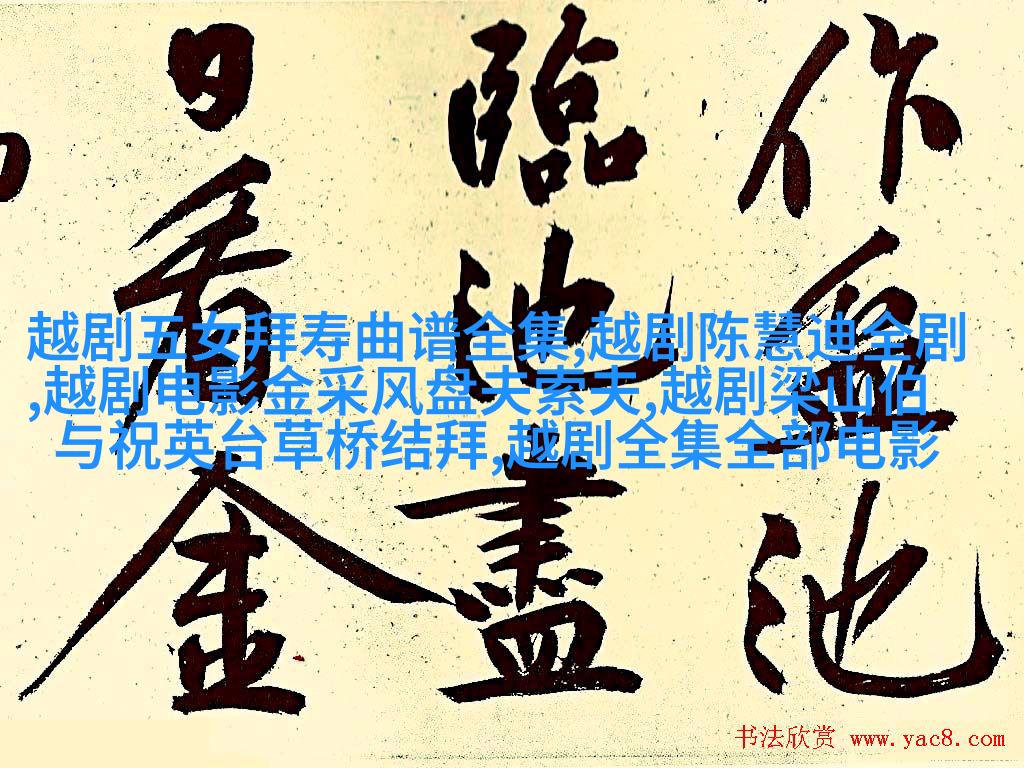 作池
臨池盡
日看金
越剧五女拜寿曲谱全集,越剧陈慧迪全剧
,越剧电影金采风盘夫索夫,越剧梁山伯
与祝英台草桥结拜,越剧全集全部电影
书法欣赏 www.yac8.com